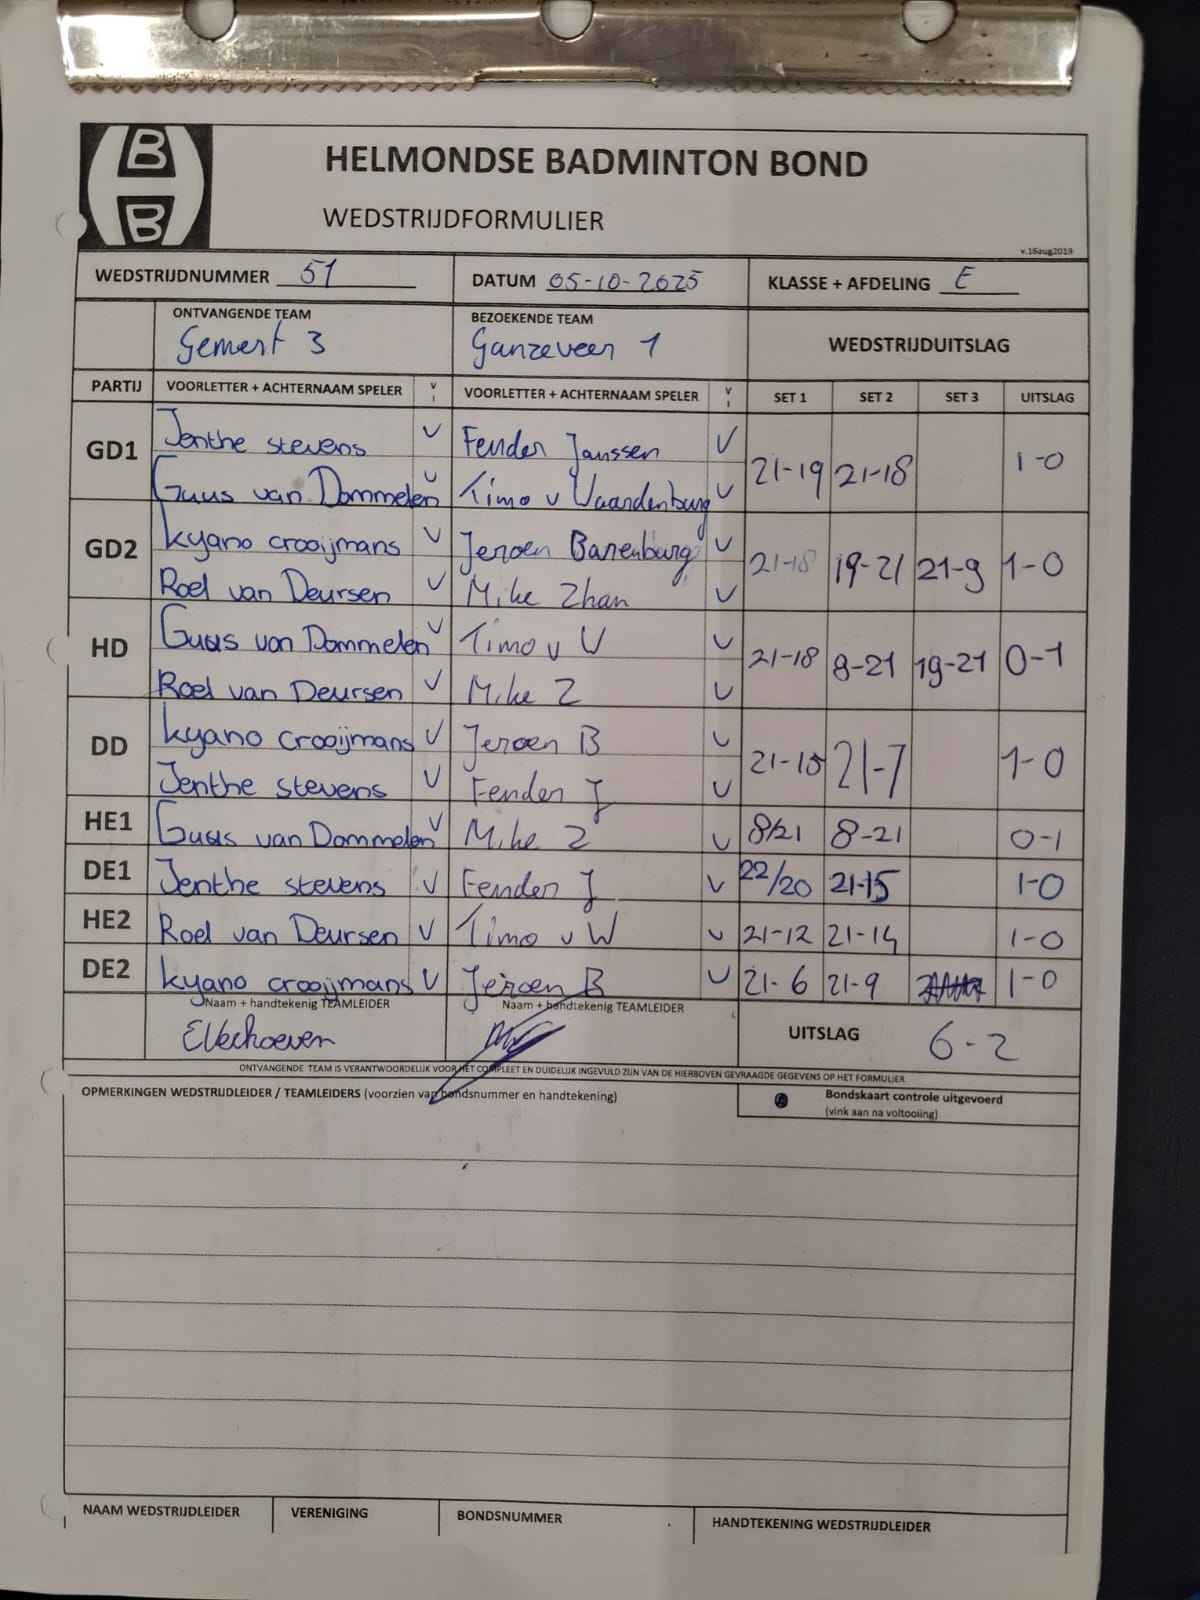 B
B
HELMONDSE BADMINTON BOND
WEDSTRIJDFORMULIER
v.16aug2019
WEDSTRIJDNUMMER 51 DATUM 05-10-2025 KLASSE + AFDELING E
ONTVANGENDE TEAM BEZOEKENDE TEAM
Gemert 3 Ganzeveer 1 WEDSTRIJDUITSLAG
PARTIJ VOORLETTER + ACHTERNAAM SPELER V I VOORLETTER + ACHTERNAAM SPELER V I SET 1 SET 2 SET 3 UITSLAG
GD1 Jenthe stevens V Fender Janssen V 21-19 21-18 1-0
Guus van Dommelen V Timo v Waardenburg V
GD2 kyano crooijmans V Jeroen Barenburg V 21-18 19-21 21-9 1-0
Roel van Deursen V Mike Zhan V
HD Guus van Dommelen V Timo v W V 21-18 8-21 19-21 0-1
Roel van Deursen V Mike Z V
DD kyano crooijmans V Jeroen B V 21-15 21-7 1-0
Jenthe stevens V Fender J V
HE1 Guus van Dommelen V Mike Z V 8/21 8-21 0-1
DE1 Jenthe stevens V Fender J V 22/20 21-15 1-0
HE2 Roel van Deursen V Timo v W V 21-12 21-14 1-0
DE2 kyano crooijmans V Jeroen B V 21-6 21-9 1-0
Naam + handtekenig TEAMLEIDER Naam + handtekenig TEAMLEIDER
EVerhoeven UITSLAG 6-2
ONTVANGENDE TEAM IS VERANTWOORDELIJK VOOR HET COMPLEET EN DUIDELIJK INGEVULD ZIJN VAN DE HIERBOVEN GEVRAAGDE GEGEVENS OP HET FORMULIER
OPMERKINGEN WEDSTRIJDLEIDER / TEAMLEIDERS (voorzien van bondsnummer en handtekening) Bondskaart controle uitgevoerd
(vink aan na voltooiing)
NAAM WEDSTRIJDLEIDER VERENIGING BONDSNUMMER HANDTEKENING WEDSTRIJDLEIDER